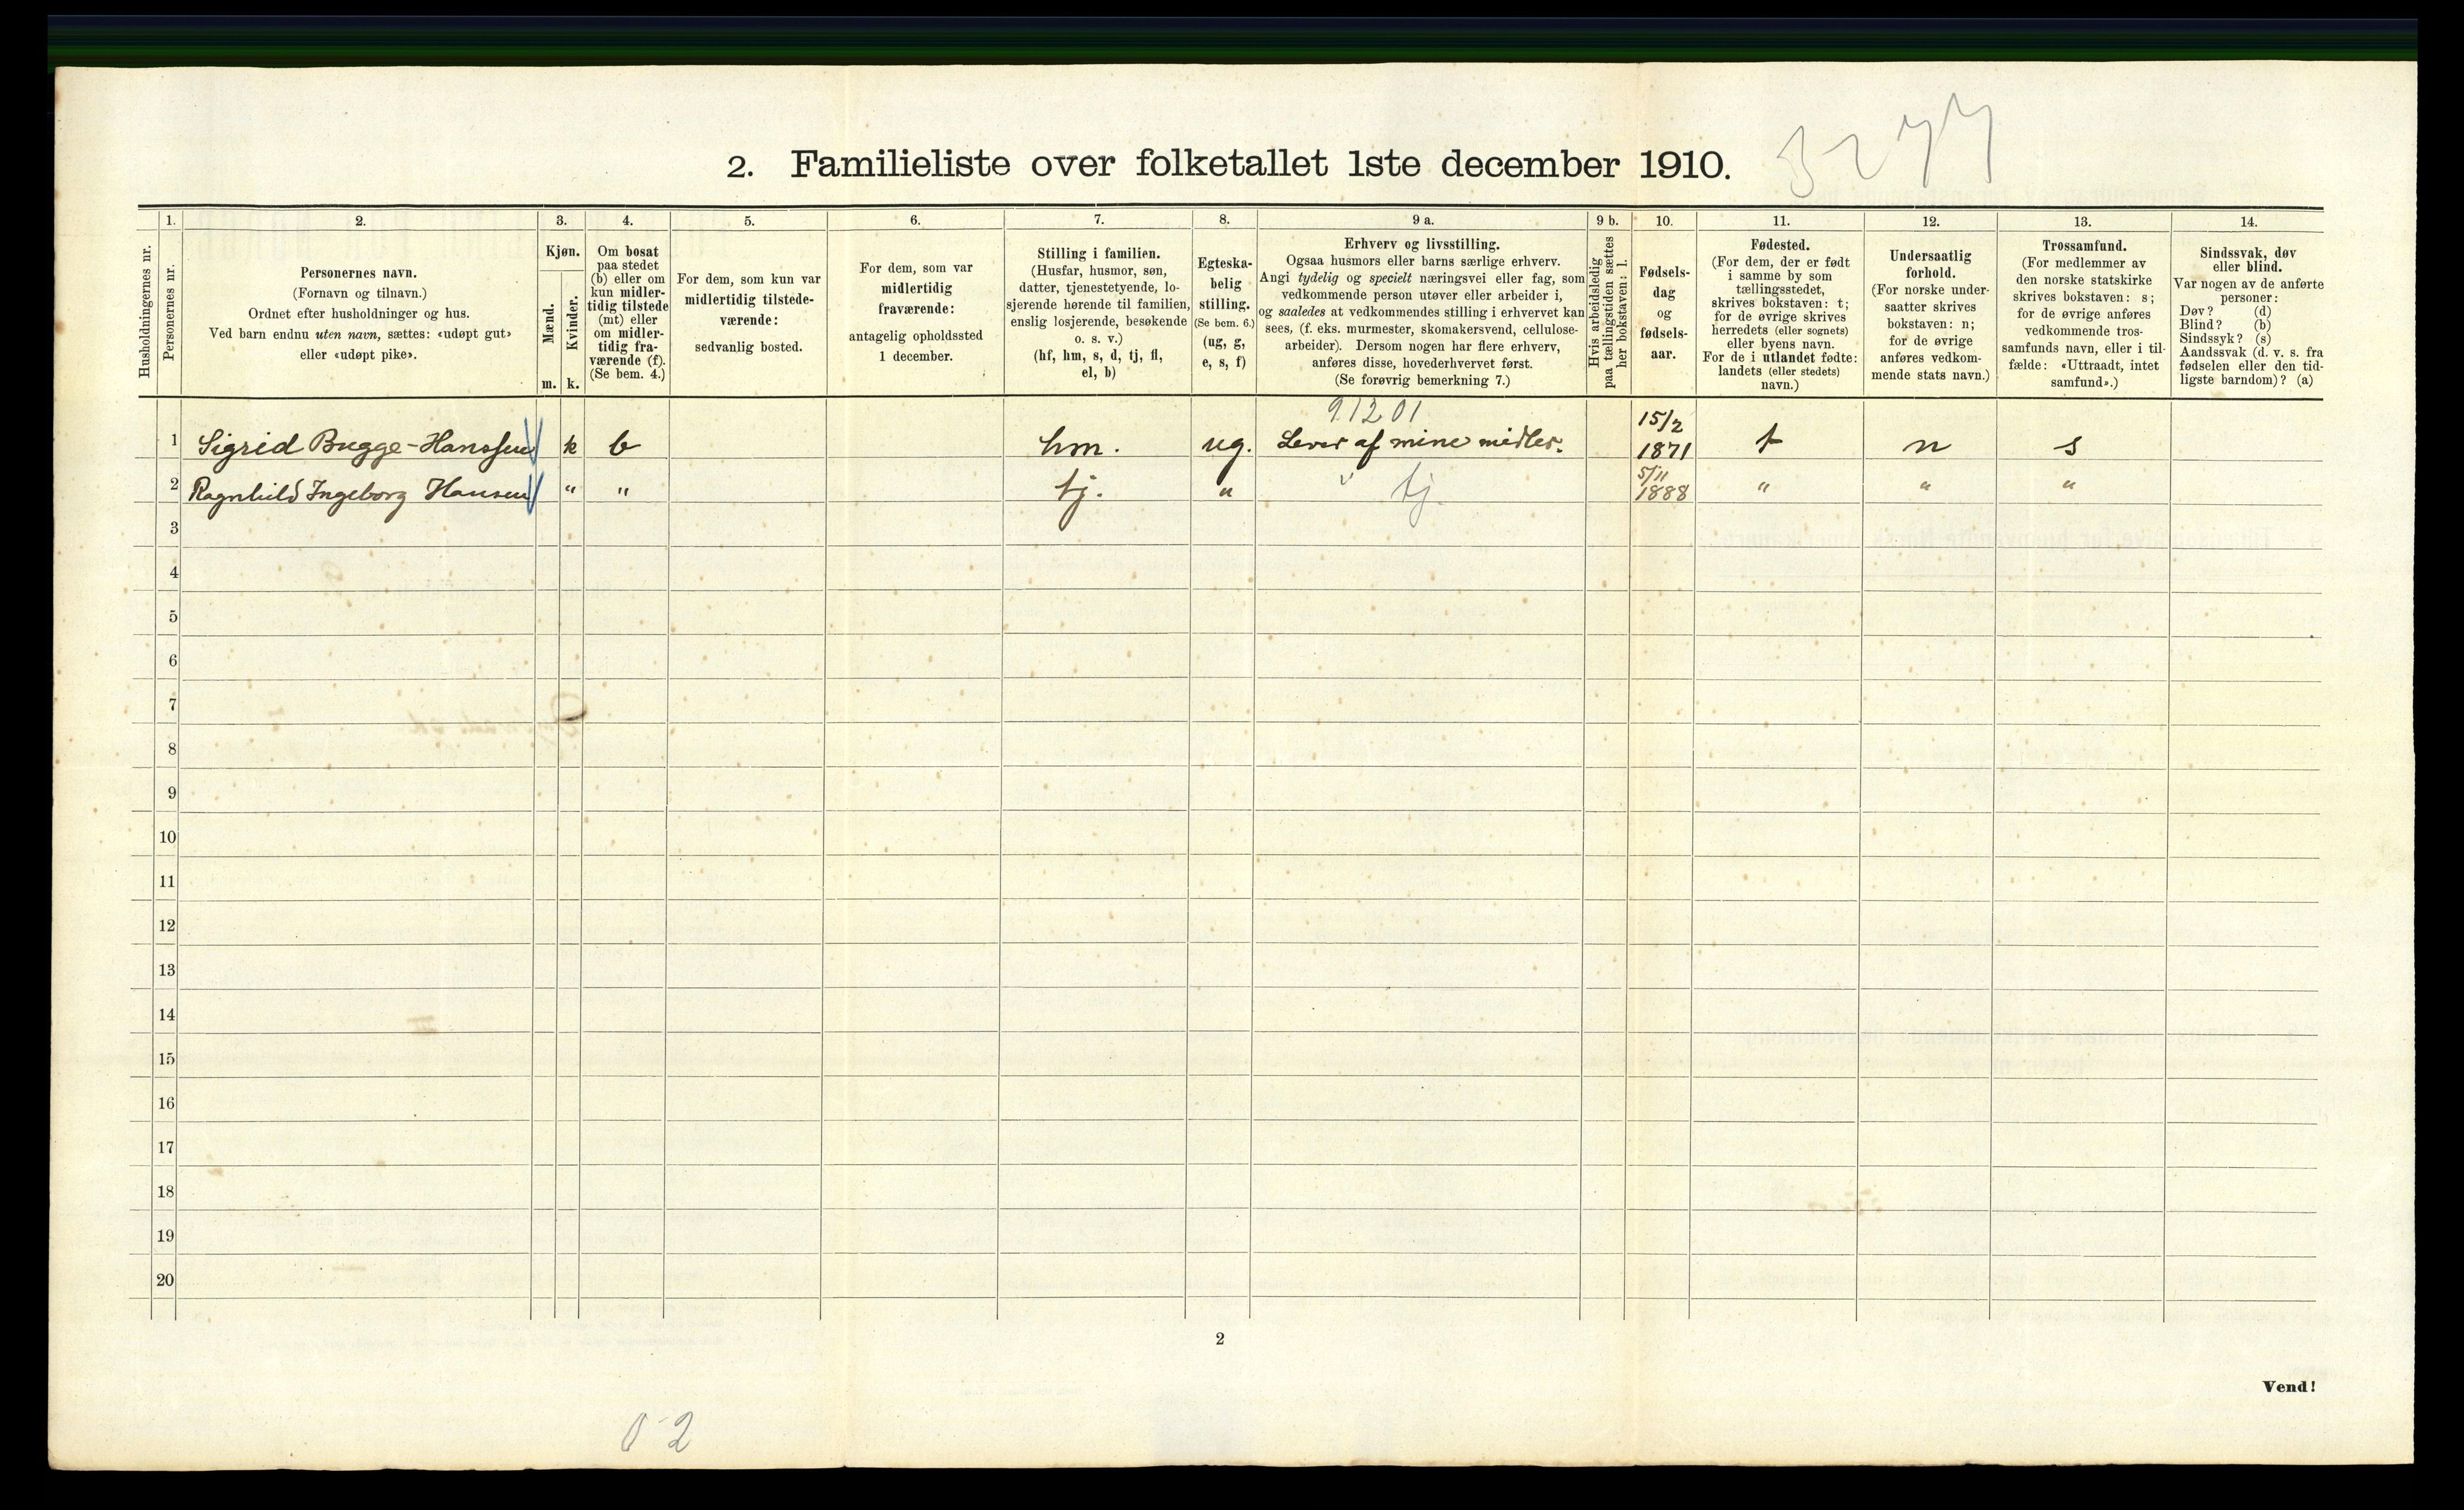 2. Familieliste over folketallet 1ste december 1910.
3277
Husholdningernes nr.
1.
Personernes nr.
2.
Personernes navn.
(Fornavn og tilnavn.)
Ordnet efter husholdninger og hus.
Ved barn endnu uten navn, sættes: «udøpt gut»
eller «udøpt pike».
3.
Kjøn.
Mænd.
m.
Kvinder.
k.
4.
Om bosat
paa stedet
(b) eller om
kun midler-
tidig tilstede
(mt) eller
om midler-
tidig fra-
værende (f).
(Se bem. 4.)
5.
For dem, som kun var
midlertidig tilstede-
værende:
sedvanlig bosted.
6.
For dem, som var
midlertidig
fraværende:
antagelig opholdssted
1 december.
7.
Stilling i familien.
(Husfar, husmor, søn,
datter, tjenestetyende, lo-
sjerende hørende til familien,
enslig losjerende, besøkende
o. s. v.)
(hf, hm, s, d, tj, fl,
el, b)
8.
Egteska-
belig
stilling.
(Se bem. 6.)
(ug, g,
e, s, f)
9 a.
Erhverv og livsstilling.
Ogsaa husmors eller barns særlige erhverv.
Angi tydelig og specielt næringsvei eller fag, som
vedkommende person utøver eller arbeider i,
og saaledes at vedkommendes stilling i erhvervet kan
sees, (f. eks. murmester, skomakersvend, cellulose-
arbeider). Dersom nogen har flere erhverv,
anføres disse, hovederhvervet først.
(Se forøvrig bemerkning 7.)
9 b.
Hvis arbeidsledig
paa tællingstiden sættes
her bokstaven: l.
10.
Fødsels-
dag
og
fødsels-
aar.
11.
Fødested.
(For dem, der er født
i samme by som
tællingsstedet,
skrives bokstaven: t;
for de øvrige skrives
herredets (eller sognets)
eller byens navn.
For de i utlandet fødte:
landets (eller stedets)
navn.)
12.
Undersaatlig
forhold.
(For norske under-
saatter skrives
bokstaven: n;
for de øvrige
anføres vedkom-
mende stats navn.)
13.
Trossamfund.
(For medlemmer av
den norske statskirke
skrives bokstaven: s;
for de øvrige anføres
vedkommende tros-
samfunds navn, eller i til-
fælde: «Uttraadt, intet
samfund».)
14.
Sindssvak, døv
eller blind.
Var nogen av de anførte
personer:
Døv? (d)
Blind? (b)
Sindssyk? (s)
Aandssvak (d. v. s. fra
fødselen eller den tid-
ligste barndom)? (a)
91201
1 Sigrid Bugge-Hanssen k b hm. ug. Lever af mine midler. 15/2 1871 t n s
2 Ragnhild Ingeborg Hansen " " tj. " tj. 5/11 1888 " " "
3
4
5
6
7
8
9
10
11
12
13
14
15
16
17
18
19
20
2
Vend!
0-2